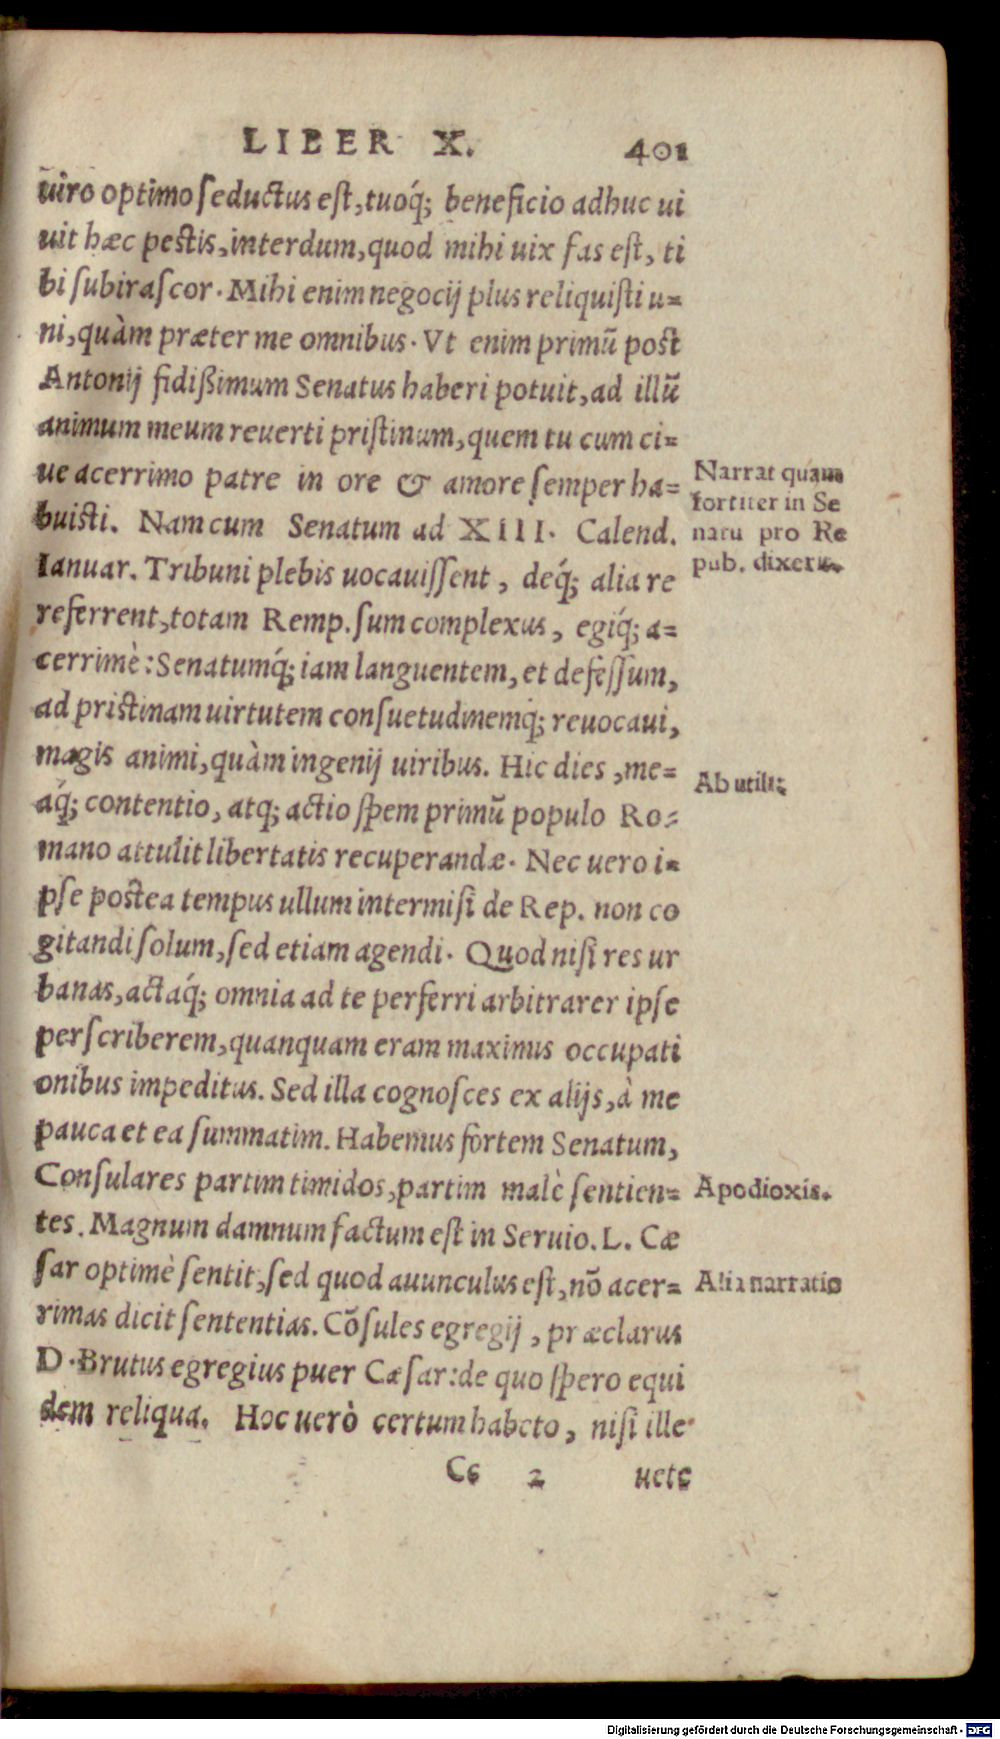 LIBER X. 401
uiro optimo seductus est, tuoq́; beneficio adhuc ui
uit hæc pestis, interdum, quod mihi uix fas est, ti
bi subirascor. Mihi enim negocij plus reliquisti u=
ni, quàm præter me omnibus. Vt enim primū post
Antonij fidißimum Senatus haberi potuit, ad illū
animum meum reuerti pristinum, quem tu cum ci=
ue acerrimo patre in ore & amore semper ha=
buisti. Nam cum Senatum ad XIII. Calend.
Ianuar. Tribuni plebis uocauissent, deq́; alia re
referrent, totam Remp. sum complexus, egiq́; a=
cerrimè: Senatumq́; iam languentem, et defessum,
ad pristinam uirtutem consuetudinemq́; reuocaui,
magis animi, quàm ingenij uiribus. Hic dies, me=
aq́; contentio, atq; actio spem primū populo Ro=
mano attulit libertatis recuperandæ. Nec uero i=
pse postea tempus ullum intermisi de Rep. non co
gitandi solum, sed etiam agendi. Quod nisi res ur
banas, actaq́; omnia ad te perferri arbitrarer ipse
perscriberem, quanquam eram maximus occupati
onibus impeditus. Sed illa cognosces ex alijs, à me
pauca et ea summatim. Habemus fortem Senatum,
Consulares partim timidos, partim malè sentien=
tes. Magnum damnum factum est in Seruio. L. Cæ
sar optimè sentit, sed quod auunculus est, nō acer=
rimas dicit sententias. Cōsules egregij, præclarus
D. Brutus egregius puer Cæsar: de quo spero equi
dem reliqua. Hoc uerò certum habeto, nisi ille
Cc 2 uete
Narrat quam
fortiter in Se
natu pro Re
pub. dixerit.
Ab utili:
Apodioxis.
Alia narratio
Digitalisierung gefördert durch die Deutsche Forschungsgemeinschaft - DFG